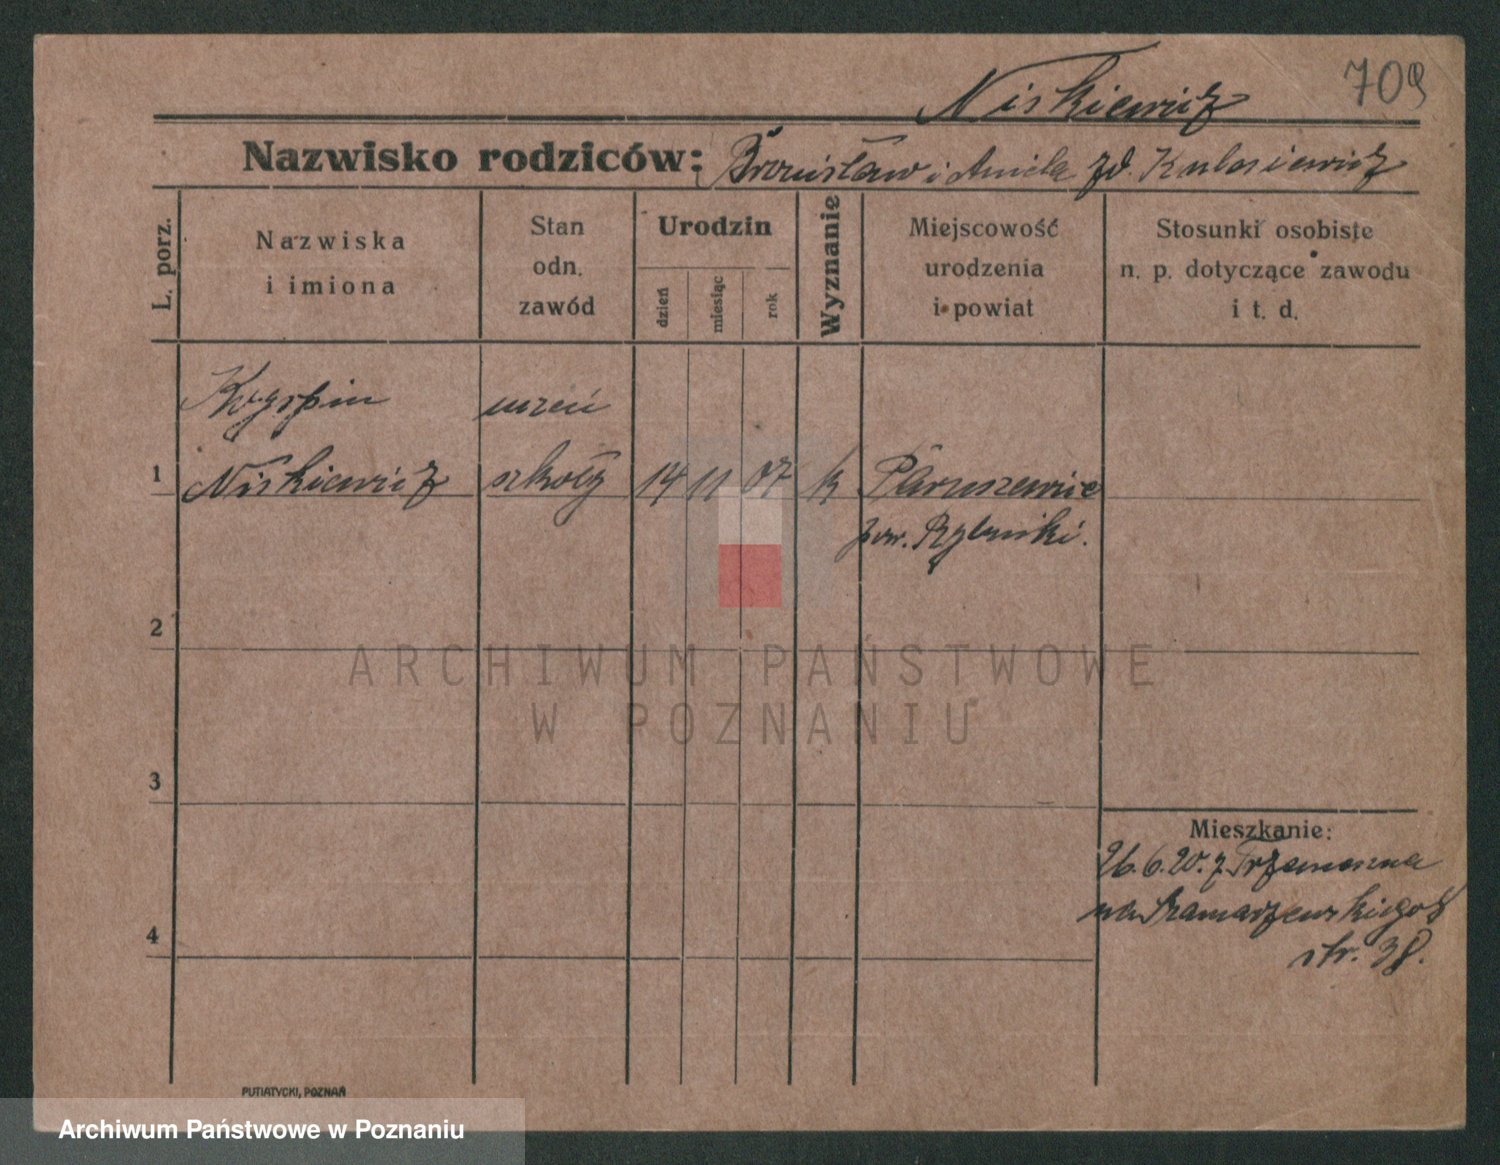 709
Niskiewicz
Nazwisko rodziców: Bronisław i Aniela zd.
L. porz.
Nazwiska
i imiona
Stan
odn.
zawód
Urodzin
dzień
miesiąc
rok
Wyznanie
Miejscowość
urodzenia
i powiat
Stosunki osobiste
n. p. dotyczące zawodu
i t. d.
uczeń
1 Niskiewicz szkoły 14 11 07 k
pow.
2
3
4
Mieszkanie:
26.6.20. z Trzemeszna
na Szamarzewskiego
str. 38.
PUTIATYCKI, POZNAŃ
ARCHIWUM PAŃSTWOWE
W POZNANIU
Archiwum Państwowe w Poznaniu